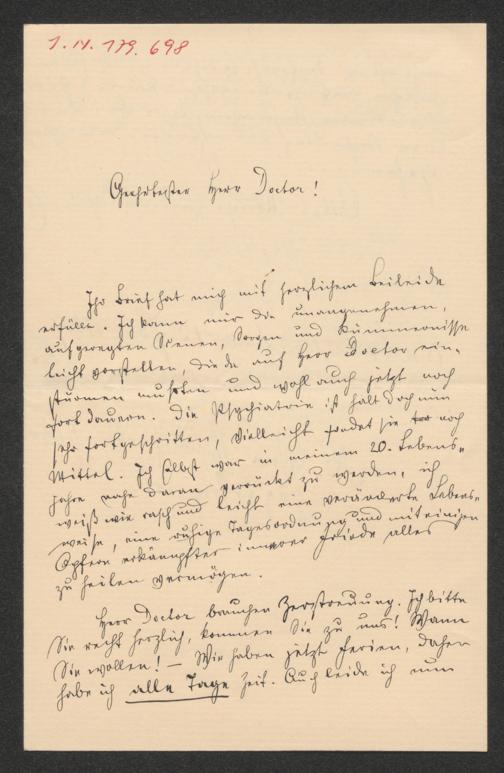 I. N. 179.698
Geehrtester Herr Doctor!
Ihr Brief hat mich mit herzlichem Beileide
erfüllt. Ich kann mir die unangenehmen,
aufgeregten Scenen, Sorgen und Kümmernisse
leicht vorstellen, die da auf Herr Doctor ein-
stürmen mußten und wohl auch jetzt noch
fortdauern. Die Psychiatrie ist halt doch nun
sehr fortgeschritten, vielleicht findet sie noch
Mittel. Ich selbst war in meinem 20. Lebens-
jahre nahe daran verrückt zu werden, ich
weiß wie rasch und leicht eine veränderte Lebens-
weise, eine ruhige Tagesordnung und mit einigen
Opfern erkämpfter innerer Friede alles
zu heilen vermögen.
Herr Doctor brauchen Zerstreuung. Ich bitte
Sie recht herzlich, kommen Sie zu uns! Wann
Sie wollen! – Wir haben jetzt Ferien, daher
habe ich alle Tage Zeit. Auch leide ich nun